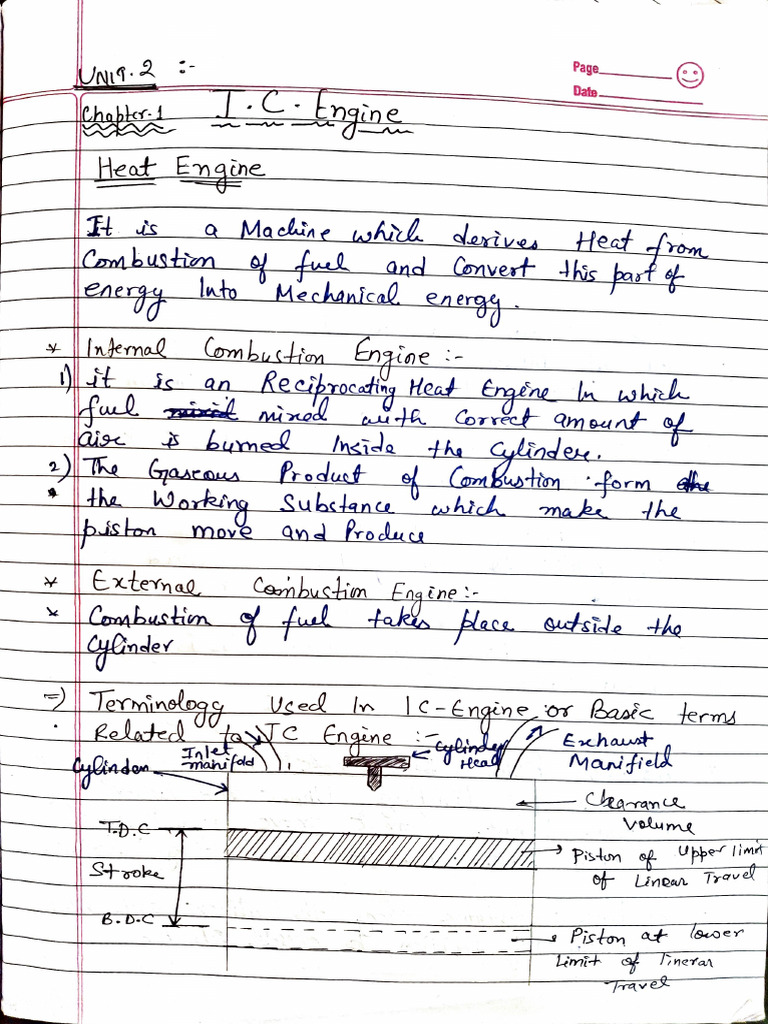 UNIT.2 :-
Page
Date
Chapter.1 I.C.Engine
Heat Engine
It is a Machine which derives Heat from
Combustion of fuel and Convert this part of
energy Into Mechanical energy.
* Internal Combustion Engine :-
1) it is an Reciprocating Heat Engine In which
fuel mixed with correct amount of
air is burned Inside the Cylinder.
2) The Gaseous Product of Combustion form
the Working Substance which make the
piston move and Produce
* External Combustion Engine :-
* Combustion of fuel takes place outside the
Cylinder
=) Terminology Used In IC-Engine or Basic terms
Related to IC Engine :-
Cylinder
Inlet
manifold
Cylinder
Head
Exhaust
Manifield
Clearance
Volume
T.D.C
Piston of Upper limit
of Linear Travel
Stroke
B.D.C
Piston at lower
limit of linerar
Travel